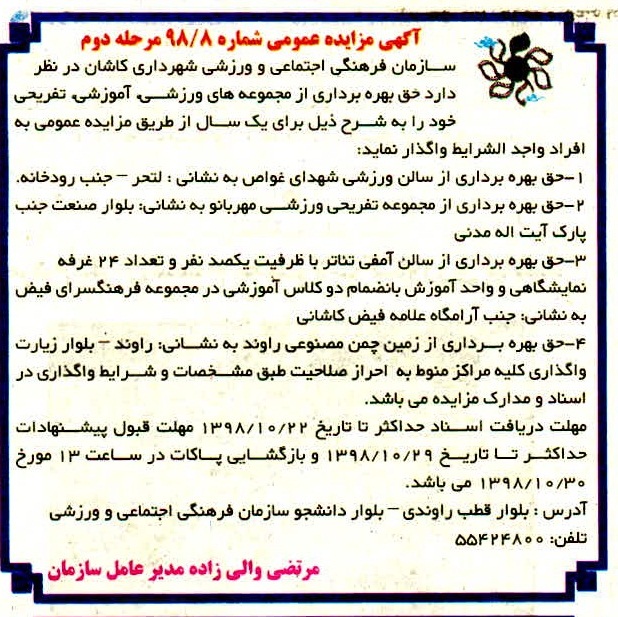 آگهی مزایده عمومی شماره ۹۸/۸ مرحله دوم
سـازمان فرهنگی اجتماعی و ورزشی شهرداری کاشان در نظر
دارد حق بهره برداری از مجموعه های ورزشـی، آموزشی، تفریحی
خود را به شـرح ذیل برای یک سـال از طریق مزایده عمومی به
افراد واجد الشرایط واگذار نماید:
۱-حق بهره برداری از سالن ورزشی شهدای غواص به نشانی : لتحر – جنب رودخانه.
۲-حق بهره برداری از مجموعه تفریحی ورزشـی مهربانو به نشانی: بلوار صنعت جنب
پارک آیت اله مدنی
۳-حق بهره برداری از سالن آمفی تئاتر با ظرفیت یکصد نفر و تعداد ۲۴ غرفه
نمایشگاهی و واحد آموزش بانضمام دو کلاس آموزشی در مجموعه فرهنگسرای فیض
به نشانی: جنب آرامگاه علامه فیض کاشانی
۴-حق بهره بـرداری از زمین چمن مصنوعی راوند به نشـانی: راوند – بلوار زیارت
واگذاری کلیه مراکز منوط به احراز صلاحیت طبق مشـخصات و شـرایط واگذاری در
اسناد و مدارک مزایده می باشد.
مهلت دریافت اسـناد حداکثر تا تاریخ ۱۳۹۸/۱۰/۲۲ مهلت قبول پیشـنهادات
حداکثـر تـا تاریـخ ۱۳۹۸/۱۰/۲۹ و بازگشـایی پـاکات در سـاعت ۱۳ مورخ
۱۳۹۸/۱۰/۳۰ می باشد.
آدرس : بلوار قطب راوندی – بلوار دانشجو سازمان فرهنگی اجتماعی و ورزشی
تلفن: ۵۵۴۲۴۸۰۰
مرتضی والی زاده مدیر عامل سازمان